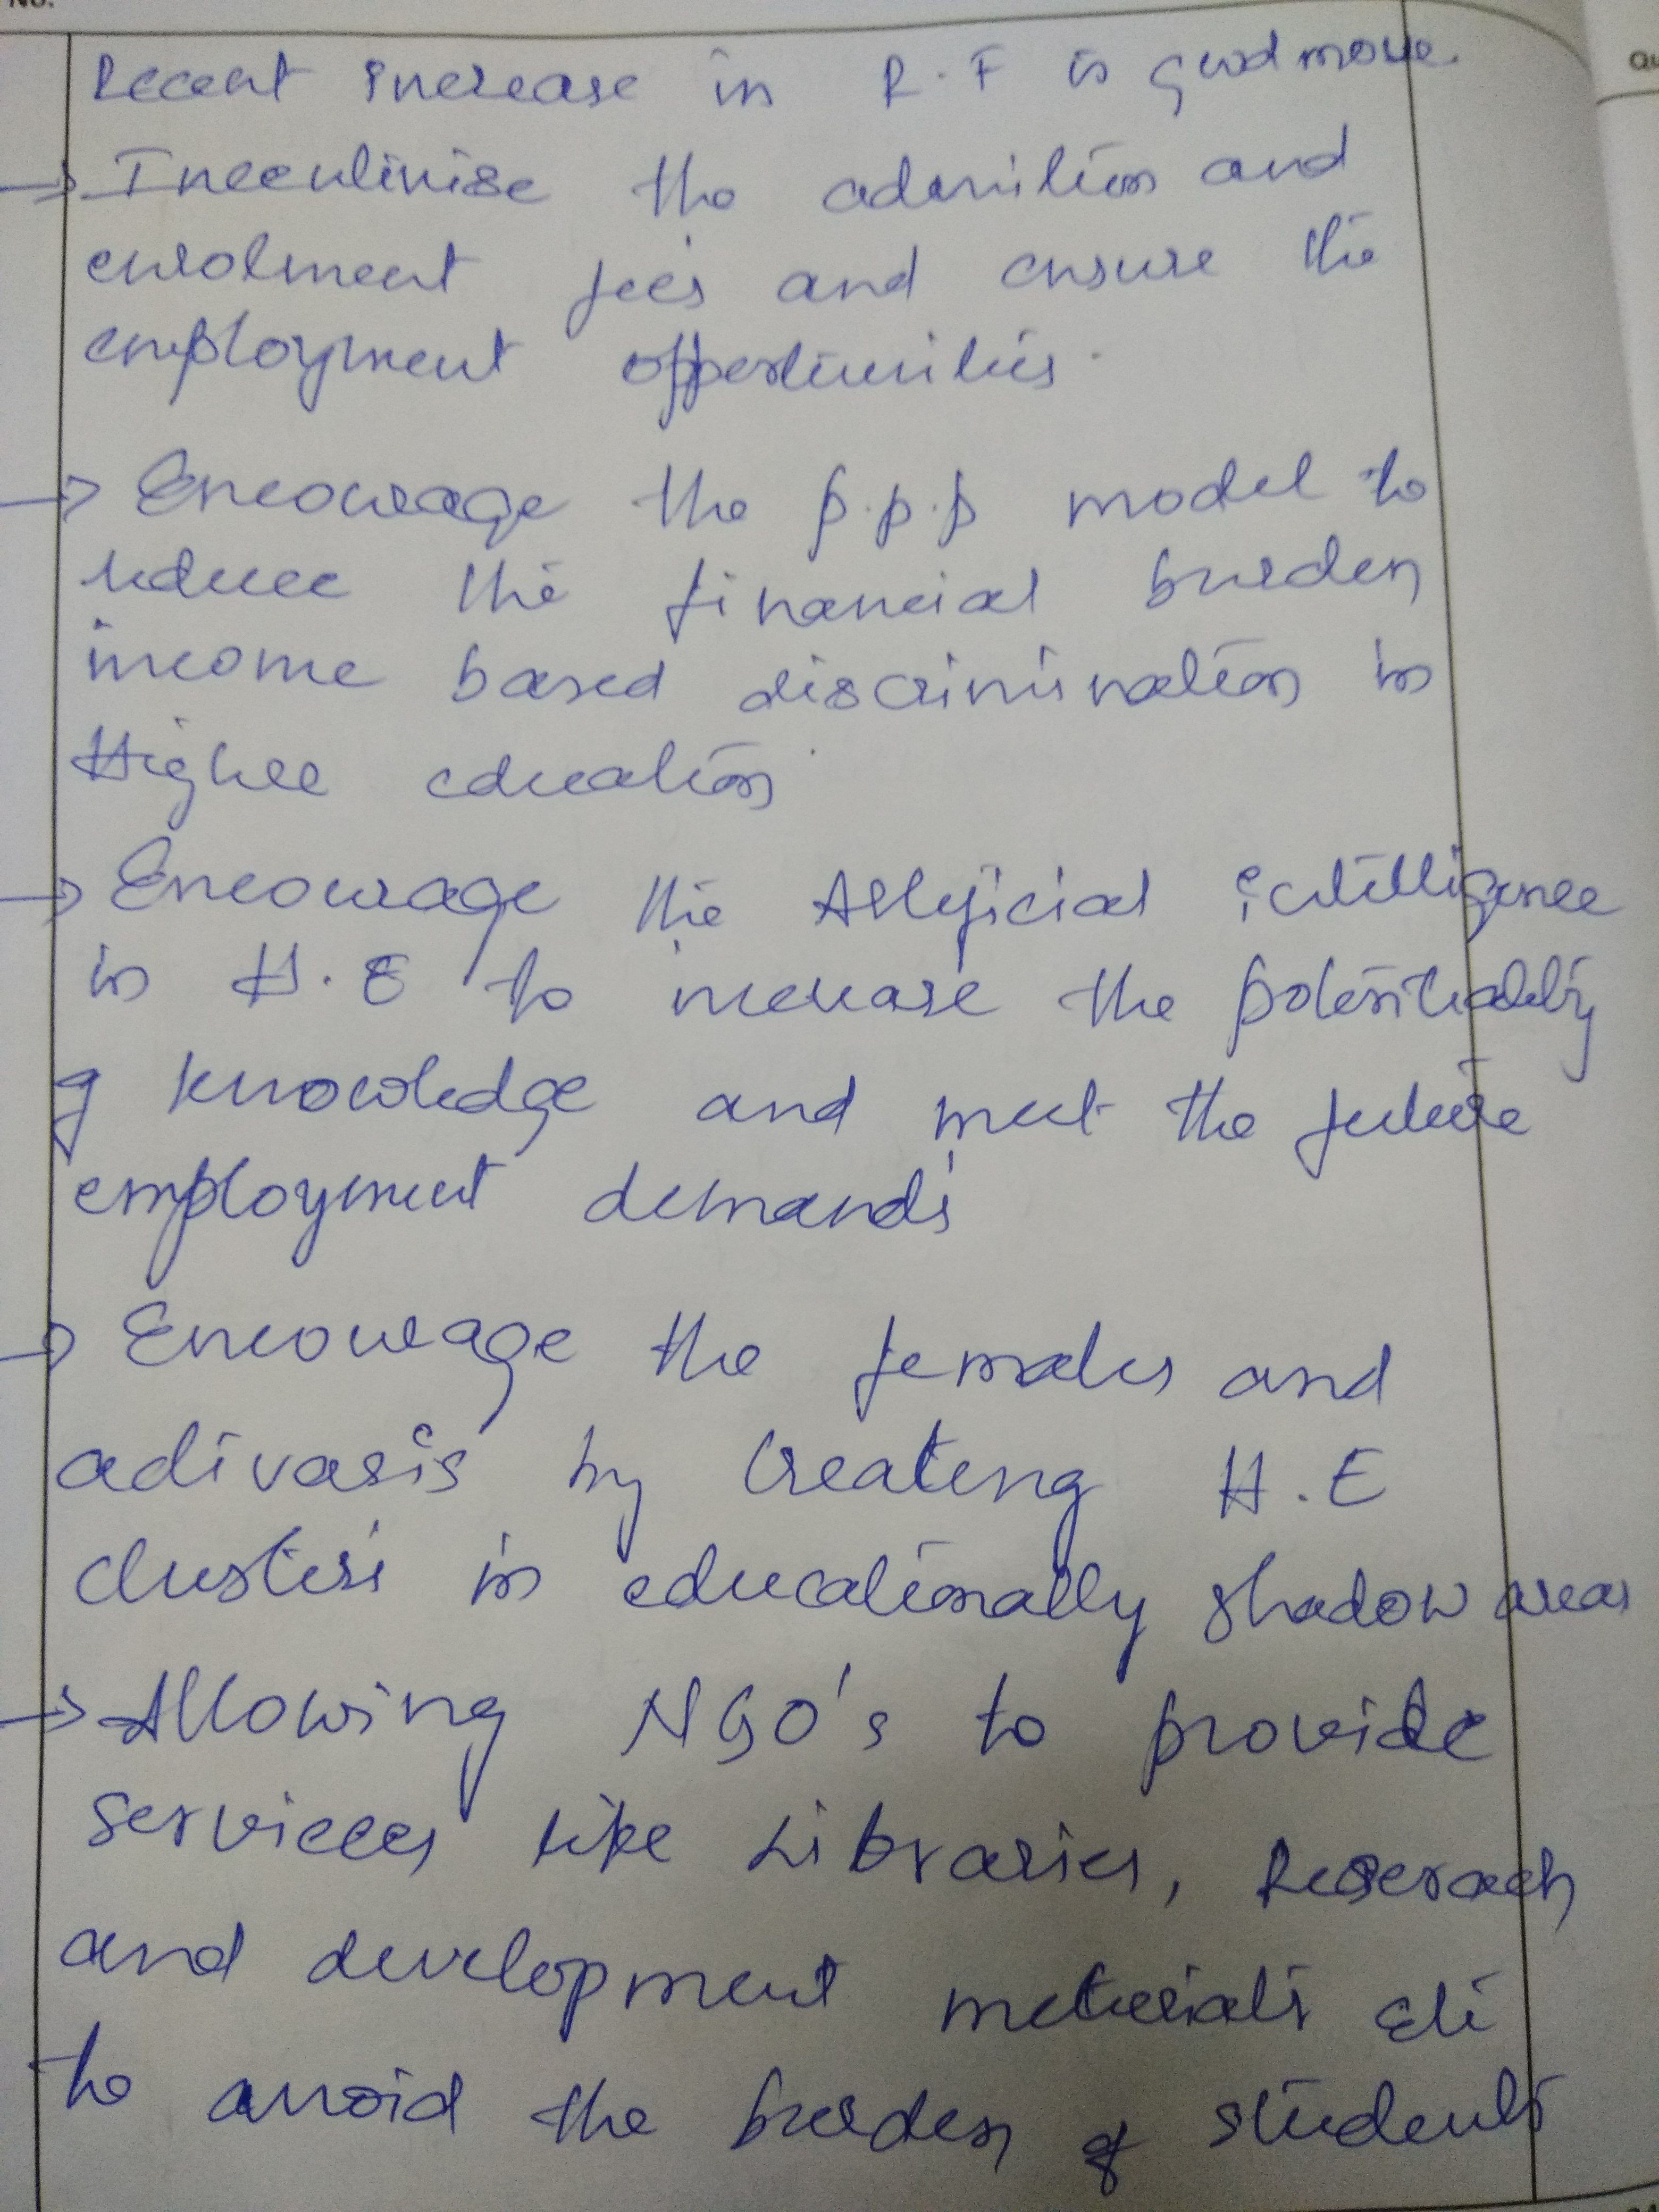 No.
Recent increase in R.F is good move.
→ Incentivise the admition and
enrolment fees and ensure the
employment opportunities.
→ Encourage the p.p.p model to
reduce the financial burden
income based discrimination in
Higher education.
→ Encourage the Artificial intelligence
in H.E to increase the potentiality
of knowledge and meet the future
employment demands
→ Encourage the females and
adivasis by creating H.E
clusters in educationally shadow areas
→ Allowing NGO's to provide
services like Libraries, Reserach
and development meterials etc
to avoid the burden of students